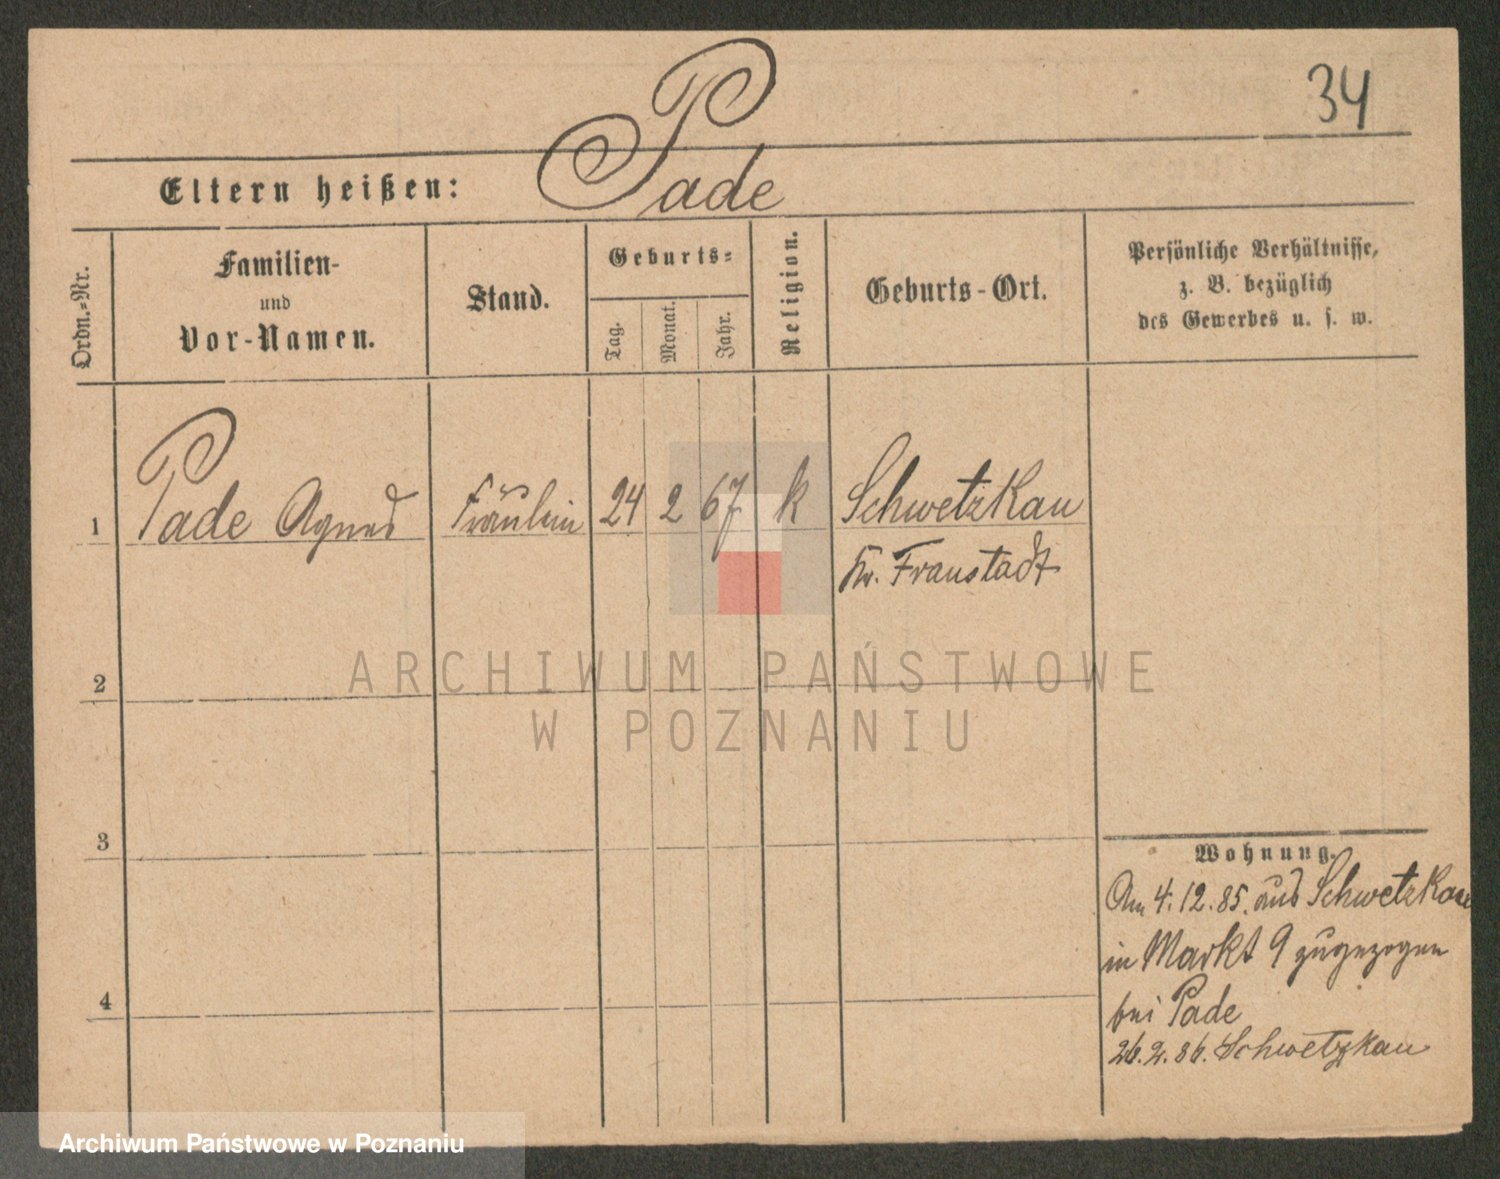 34
Pade
Eltern heißen:
Ordn.-Nr.
Familien-
und
Vor-Namen.
Stand.
Geburts-
Tag.
Monat.
Jahr.
Religion.
Geburts-Ort.
Persönliche Verhältnisse,
z. B. bezüglich
des Gewerbes u. s. w.
1 Pade Agnes Fräulein 24 2 67 k Schwetzkau
Kr. Fraustadt
2
ARCHIWUM PAŃSTWOWE
W POZNANIU
3
4
Wohnung.
Am 4.12.85. aus Schwetzkau
in Markt 9 zugezogen
bei Pade
26.2.86. Schwetzkau
Archiwum Państwowe w Poznaniu